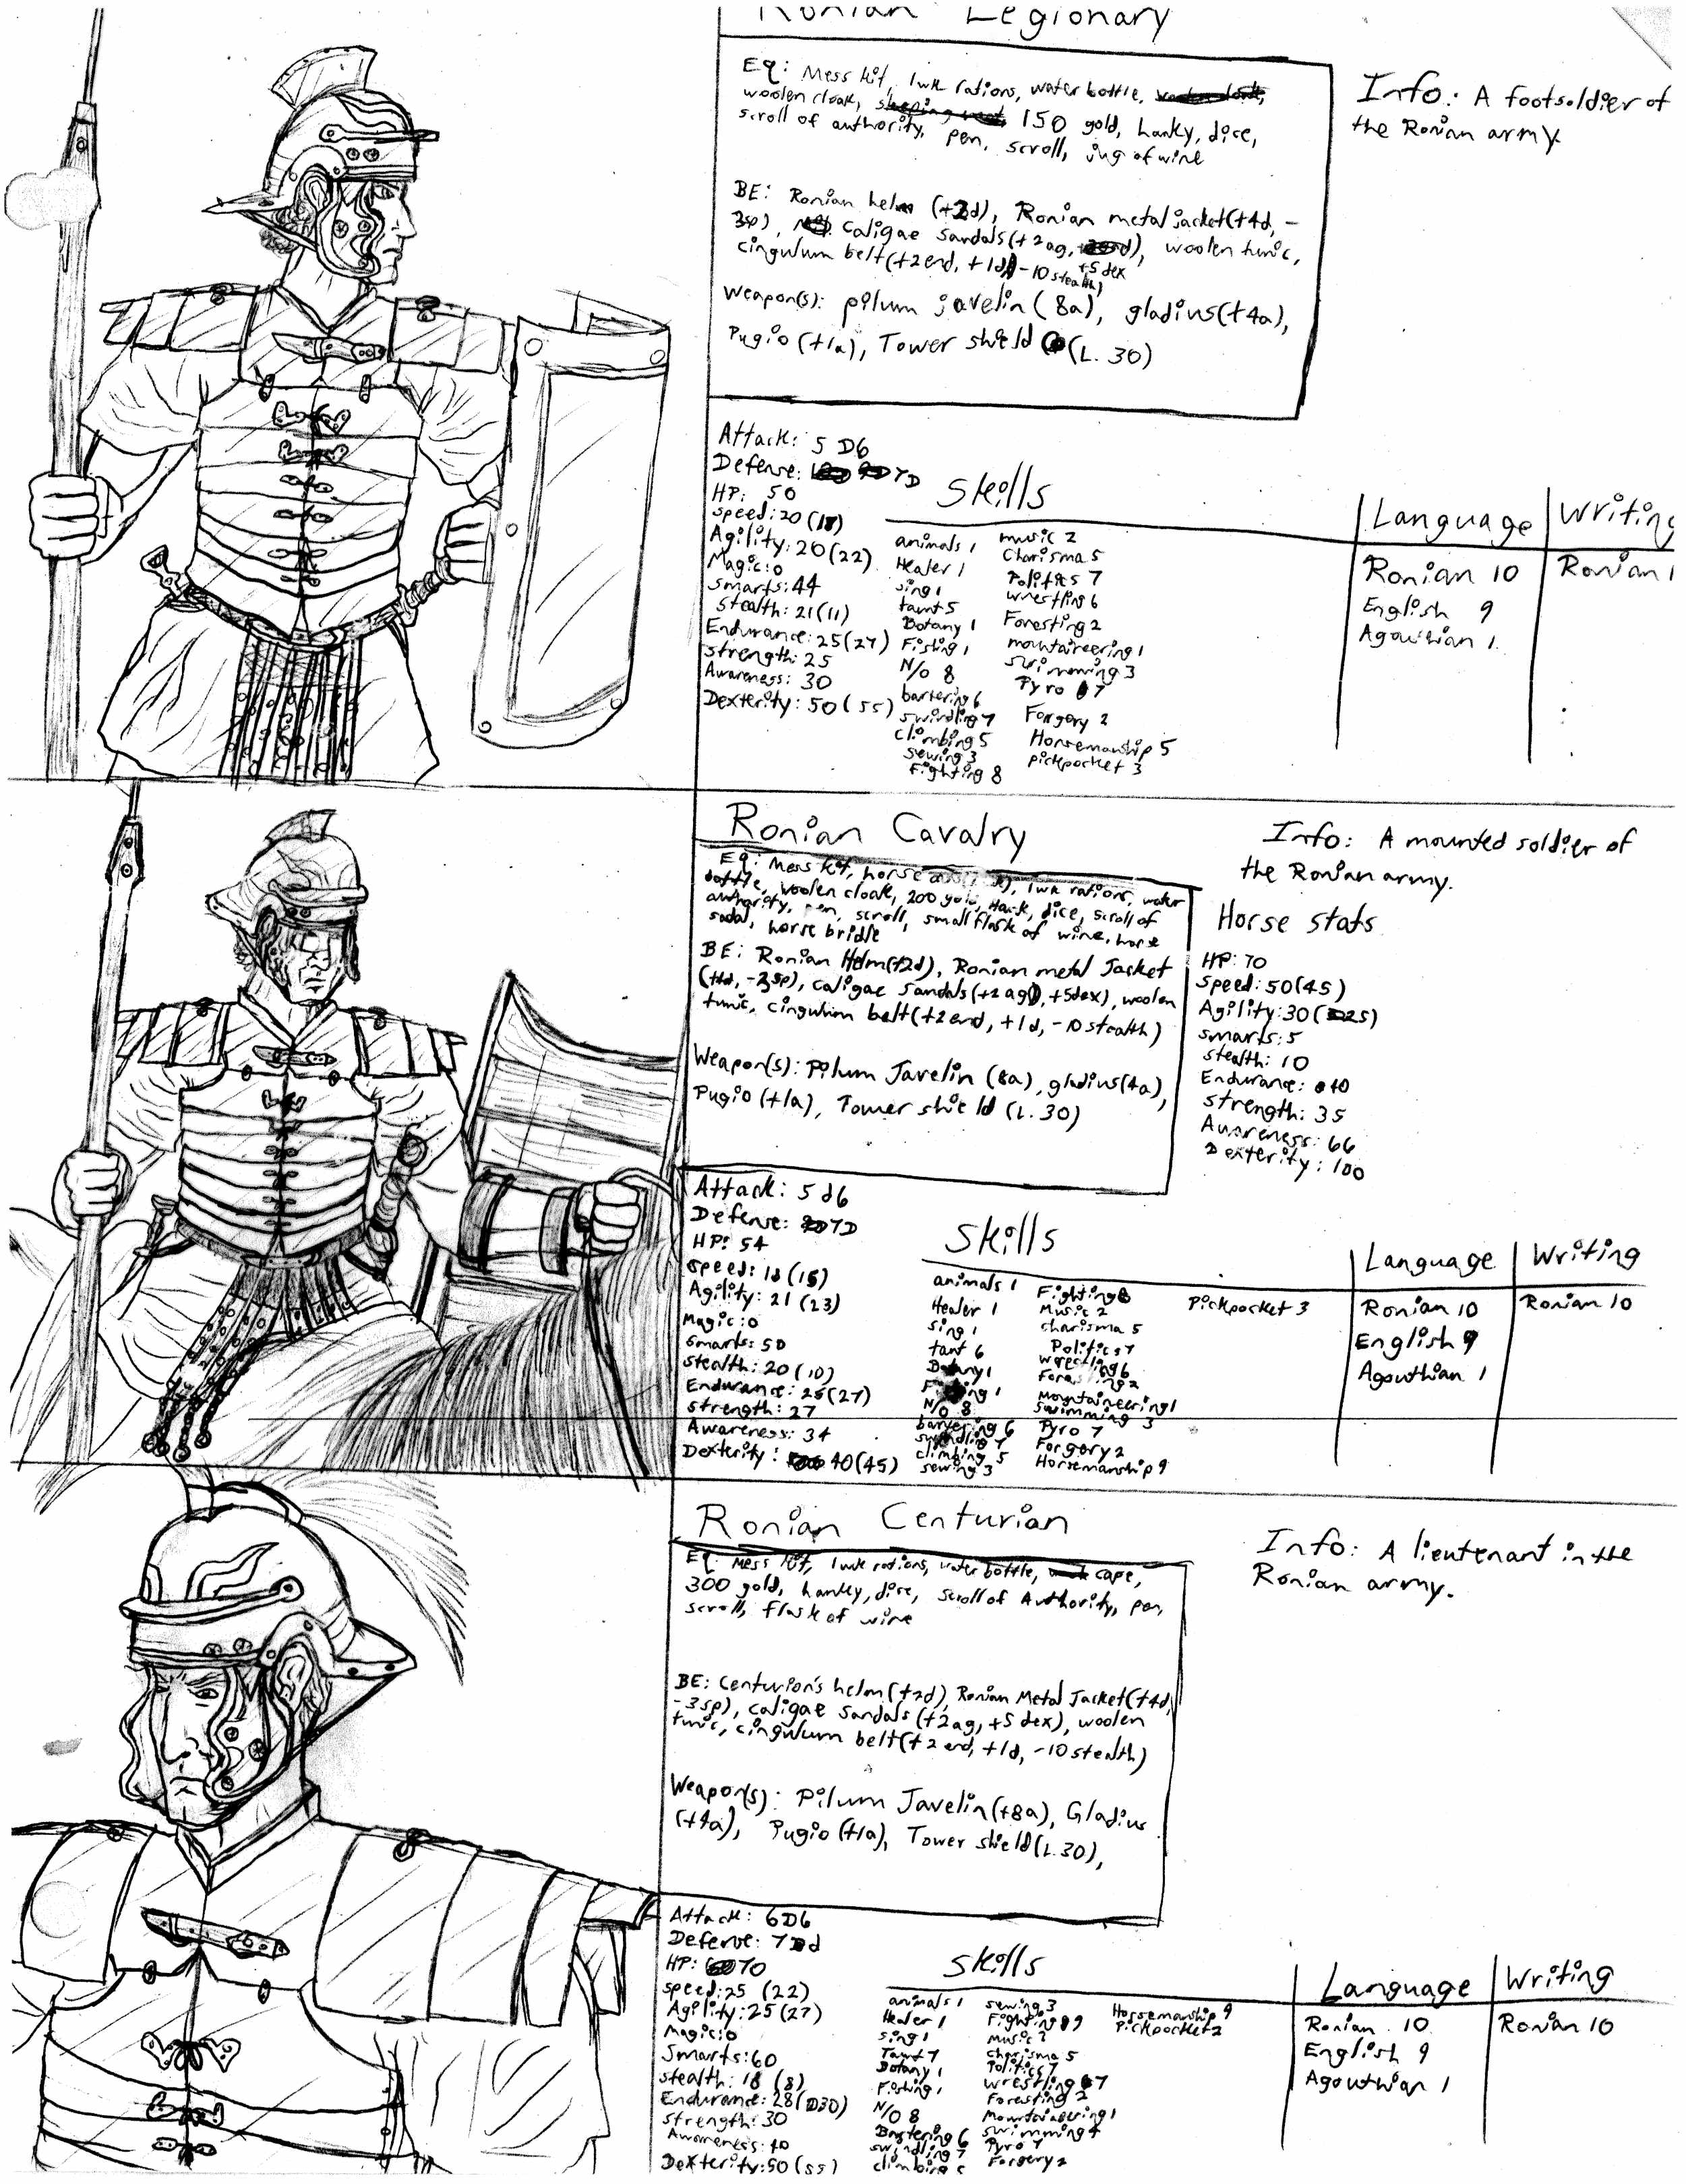 Ronian Legionary
Eq: Mess kit, 1wk rations, water bottle,
woolen cloak, 150 gold, hanky, dice,
scroll of authority, pen, scroll, jug of wine
BE: Ronian helm (+2d), Ronian metal jacket(+4d, -
3sp), caligae sandals(+2ag, +5 dex), woolen tunic,
cingulum belt(+2end, +1d, -10 stealth)
Weapon(s): pilum javelin (8a), gladius(+4a),
Pugio (+1a), Tower shield (L. 30)
Info: A footsoldier of
the Ronian army.
Attack: 5 D6
Defense: 7D
HP: 50
Speed: 20 (18)
Agility: 20 (22)
Magic: 0
Smarts: 44
Stealth: 21(11)
Endurance: 25(27)
Strength: 25
Awareness: 30
Dexterity: 50 (55)
Skills
animals 1
Healer 1
sing 1
taunt 5
Botany 1
Fishing 1
N/O 8
bartering 6
swindling 7
climbing 5
sewing 3
Fighting 8
music 2
Charisma 5
Politics 7
wrestling 6
Foresting 2
mountaineering 1
swimming 3
Pyro 7
Forgery 2
Horsemanship 5
pickpocket 3
Language
Ronian 10
English 9
Agouthian 1
Writing
Ronian 1
Ronian Cavalry
Eq: Mess kit, horse 1wk rations, water
bottle, woolen cloak, 200 gold, Hank, dice, scroll of
authority, pen, scroll, small flask of wine, horse
sadal, horse bridle
BE: Ronian Helm(+2d), Ronian metal Jacket
(+4d, -3sp), caligae sandals(+2 ag, +5dex), woolen
tunic, cingulum belt(+2end, +1d, -10 stealth)
Weapon(s): Pilum Javelin (8a), gladius(4a),
Pugio (+1a), Tower shield (L. 30)
Info: A mounted soldier of
the Ronian army.
Horse stats
HP: 70
Speed: 50(45)
Agility: 30(25)
smarts: 5
stealth: 10
Endurance: 40
strength: 35
Awareness: 66
Dexterity: 100
Attack: 5 d6
Defense: 7D
HP: 54
Speed: 18 (15)
Agility: 21 (23)
Magic: 0
Smarts: 50
Stealth: 20 (10)
Endurance: 25 (27)
Strength: 27
Awareness: 34
Dexterity: 40(45)
Skills
animals 1
Healer 1
sing 1
tant 6
Botany 1
Fishing 1
N/O 8
bartering 6
swindling 7
climbing 5
sewing 3
Fighting 8
Music 2
charisma 5
Politics 7
wrestling 6
Foresting 2
Mountaineering 1
swimming 3
Pyro 7
Forgery 2
Horsemanship 9
Pickpocket 3
Language
Ronian 10
English 9
Agouthian 1
Writing
Ronian 10
Ronian Centurian
Eq: Mess kit, 1wk rations, water bottle, cape,
300 gold, hanky, dice, scroll of Authority, pen,
scroll, flask of wine
BE: Centurion's helm (+2d), Ronian Metal Jacket(+4d,
-3sp), caligae sandals (+2ag, +5 dex), woolen
tunic, cingulum belt(+2 end, +1d, -10 stealth)
Weapon(s): Pilum Javelin(+8a), Gladius
(+4a), Pugio (+1a), Tower shield(L. 30),
Info: A lieutenant in the
Ronian army.
Attack: 6D6
Defense: 7d
HP: 70
speed: 25 (22)
Agility: 25(27)
Magic: 0
Smarts: 60
stealth: 18 (8)
Endurance: 28(30)
Strength: 30
Awareness: 40
Dexterity: 50 (55)
Skills
animals 1
Healer 1
sing 1
Taunt 7
Botany 1
Fishing 1
N/O 8
Bartering 6
swindling 7
climbing 5
sewing 3
Fighting 9
Music 2
Charisma 5
Politics 7
wrestling 7
Foresting 2
Mountaineering 1
swimming 4
Pyro 7
Forgery 2
Horsemanship 9
Pickpocket 2
Language
Ronian 10
English 9
Agouthian 1
Writing
Ronian 10